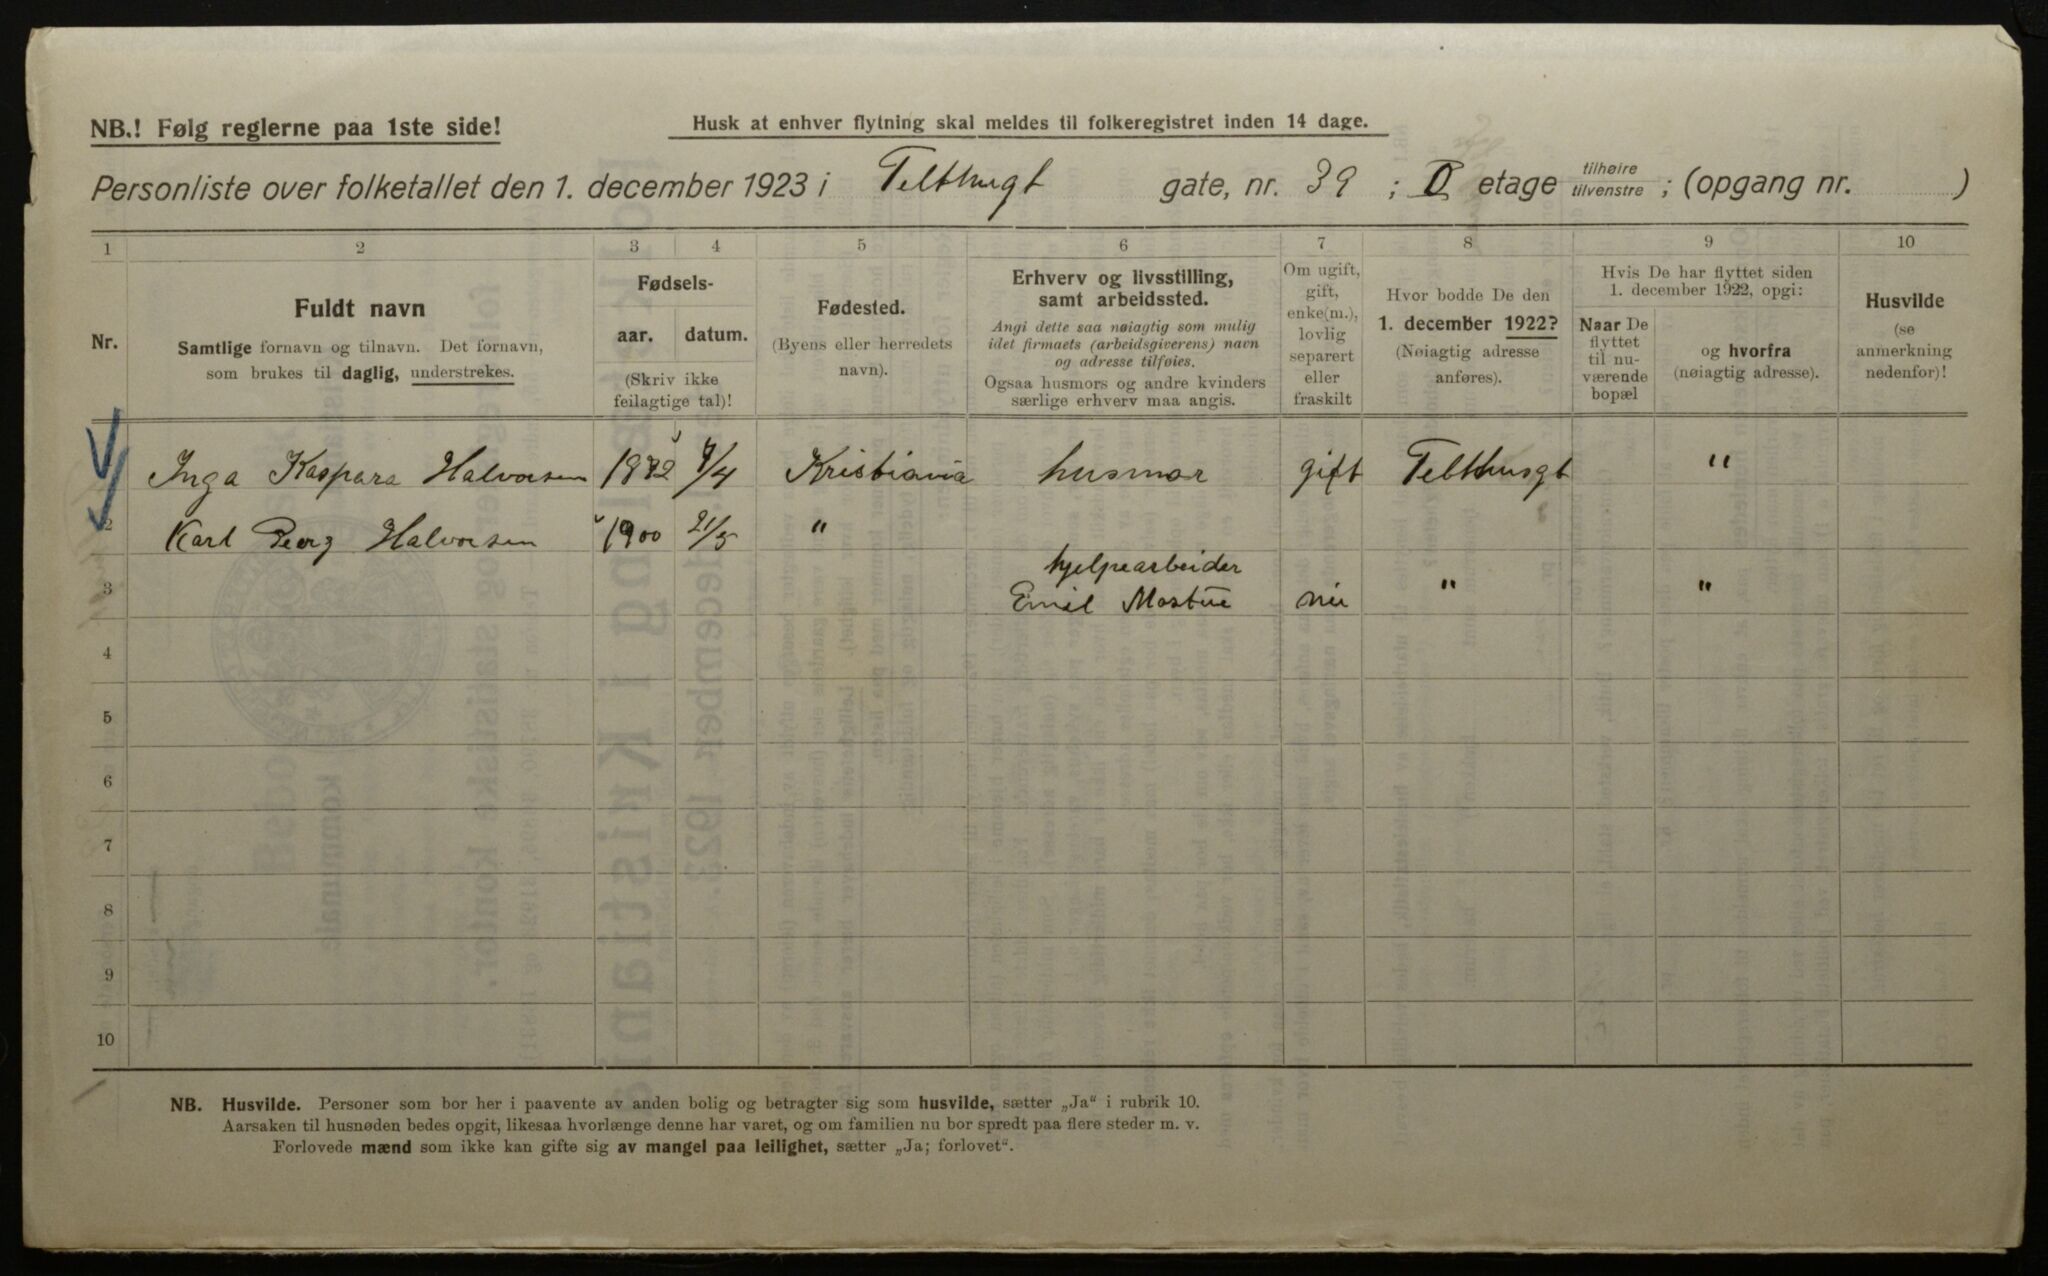 NB.! Følg reglerne paa 1ste side!
Husk at enhver flytning skal meldes til folkeregistret inden 14 dage.
Personliste over folketallet den 1. december 1923 i Telthusgt gate, nr. 39 ; etage tilhøire tilvenstre ; (opgang nr. )
1 2 3 4 5 6 7 8 9 10
Nr.
Fuldt navn
Samtlige fornavn og tilnavn. Det fornavn,
som brukes til daglig, understrekes.
Fødsels-
aar. datum.
(Skriv ikke
feilagtige tal)!
Fødested.
(Byens eller herredets
navn).
Erhverv og livsstilling,
samt arbeidssted.
Angi dette saa nøiagtig som mulig
idet firmaets (arbeidsgiverens) navn
og adresse tilføies.
Ogsaa husmors og andre kvinders
særlige erhverv maa angis.
Om ugift,
gift,
enke(m.),
lovlig
separert
eller
fraskilt
Hvor bodde De den
1. december 1922?
(Nøiagtig adresse
anføres).
Hvis De har flyttet siden
1. december 1922, opgi:
Naar De
flyttet
til nu-
værende
bopæl
og hvorfra
(nøiagtig adresse).
Husvilde
(se
anmerkning
nedenfor)!
Inga Kaspara Halvorsen 1872 7/4 Kristiania husmor gift Telthusgt "
2 Karl Georg Halvorsen 1900 21/5 "
hjelpearbeider
3 Emil Mostue nei " "
4
5
6
7
8
9
10
NB. Husvilde. Personer som bor her i paavente av anden bolig og betragter sig som husvilde, sætter „Ja“ i rubrik 10.
Aarsaken til husnøden bedes opgit, likesaa hvorlænge denne har varet, og om familien nu bor spredt paa flere steder m. v.
Forlovede mænd som ikke kan gifte sig av mangel paa leilighet, sætter „Ja; forlovet“.